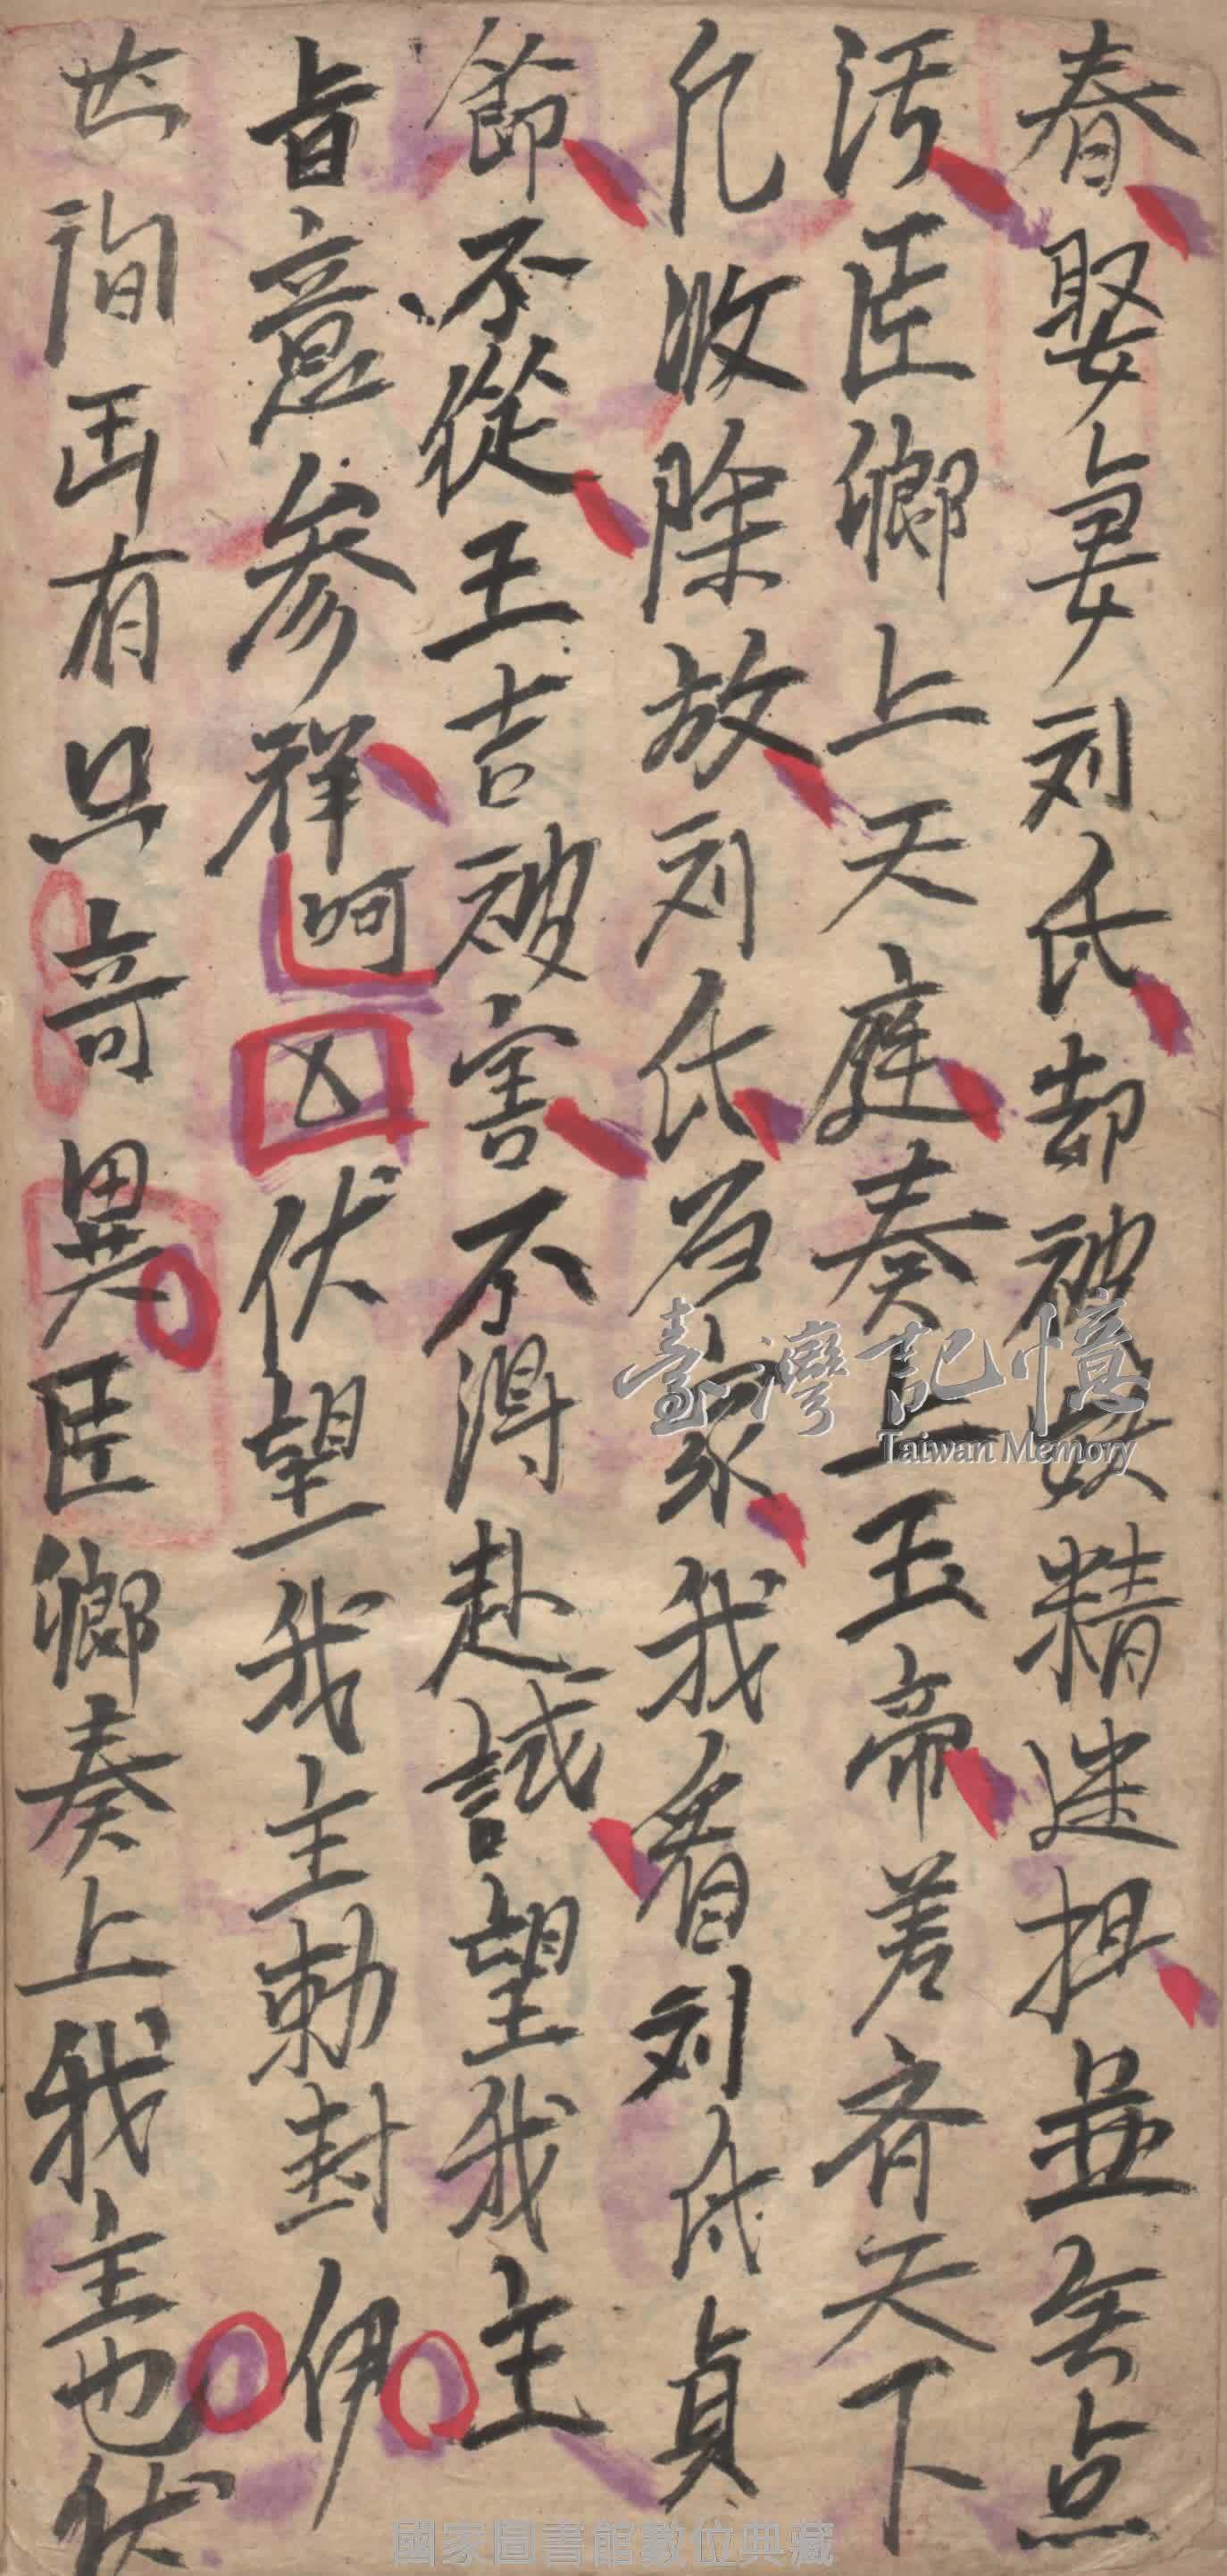 春娶妻刘氏却被妖精迷担並无点
汚臣卿上天庭奏上玉帝差齐天下
凡收除放刘氏为家我看刘氏貞
節不從王吉被害不得赴試望我主
旨意参祥呵 又 伏望我主勅封伊
世间再有只奇異臣卿奏上我主也伏
臺灣記憶
Taiwan Memory
國家圖書館數位典藏